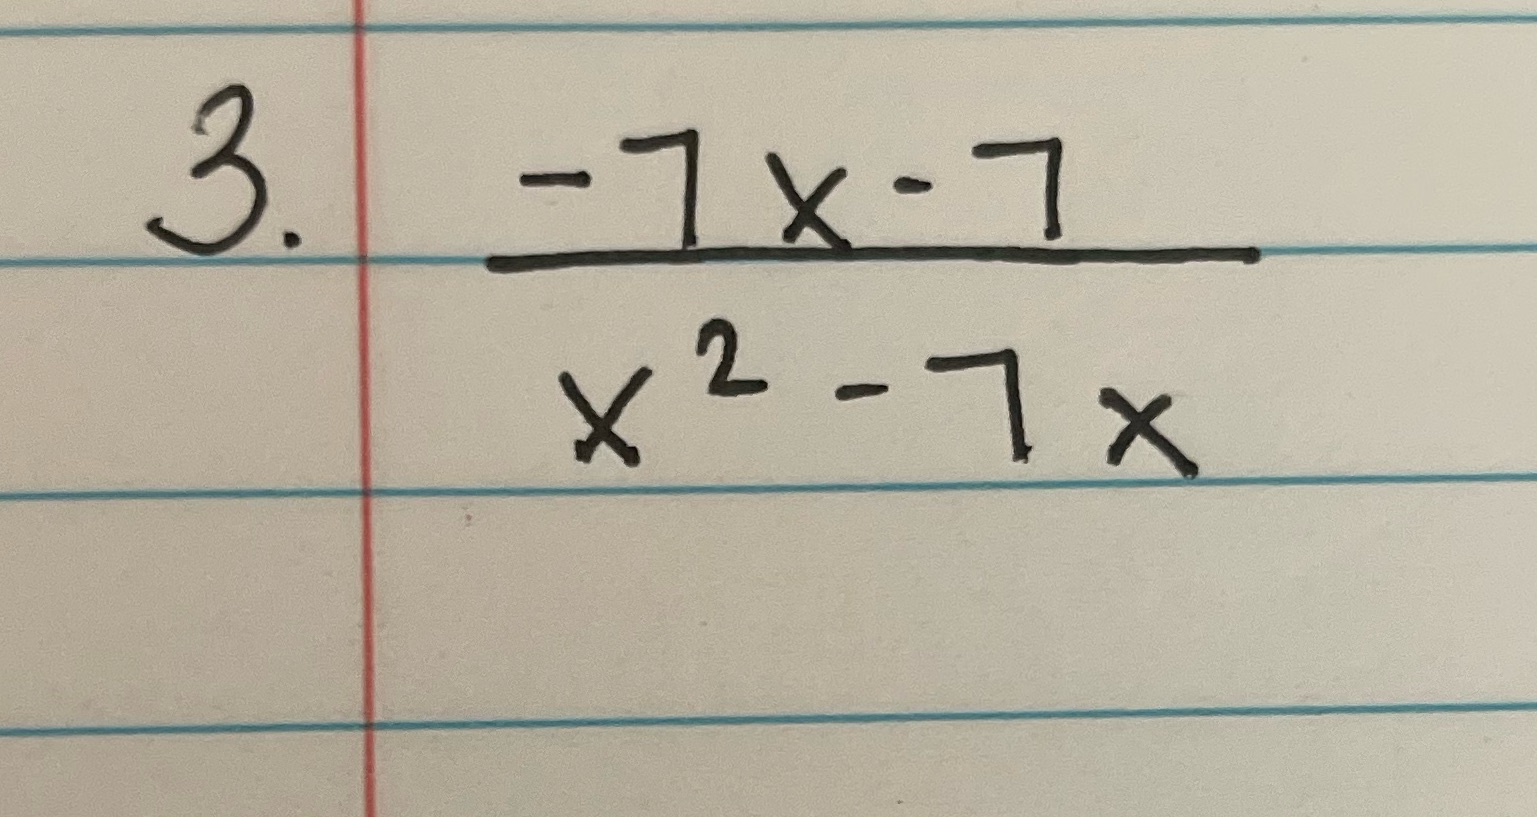 3. -7x-7
x²-7x